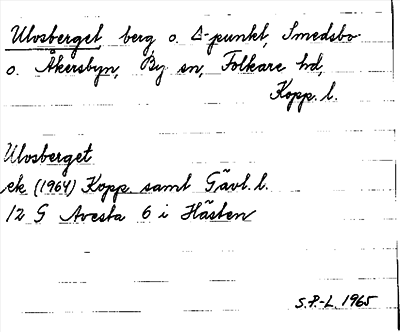 Ulvsberget, berg o. Δ-punkt, Smedsbo
o. Åkersbyn, By sn, Folkare hd,
Kopp. l.
Ulvsberget
ek (1964) Kopp. samt Gävl. l.
12 G Avesta 6 i Hästen
S.P-L. 1965